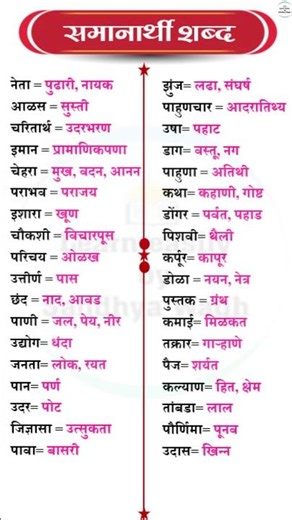 समानार्थी शब्द
नेता = पुढारी, नायक
आळस = सुस्ती
चरितार्थ = उदरभरण
इमान = प्रामाणिकपणा
चेहरा = मुख, वदन, आनन
पराभव = पराजय
इशारा = खूण
चौकशी = विचारपूस
परिचय = ओळख
उत्तीर्ण = पास
छंद = नाद, आवड
पाणी = जल, पेय, नीर
उद्योग= धंदा
जनता= लोक, रयत
पान= पर्ण
उदर= पोट
जिज्ञासा = उत्सुकता
पावा= बासरी
झुंज= लढा, संघर्ष
पाहुणचार = आदरातिथ्य
उषा= पहाट
डाग= वस्तू, नग
पाहुणा= अतिथी
कथा= कहाणी, गोष्ट
डोंगर= पर्वत, पहाड
पिशवी= थैली
कर्पूर= कापूर
डोळा= नयन, नेत्र
पुस्तक= ग्रंथ
कमाई= मिळकत
तक्रार= गाऱ्हाणे
पैज= शर्यत
कल्याण= हित, क्षेम
तांबडा= लाल
पौर्णिमा= पूनव
उदास= खिन्न